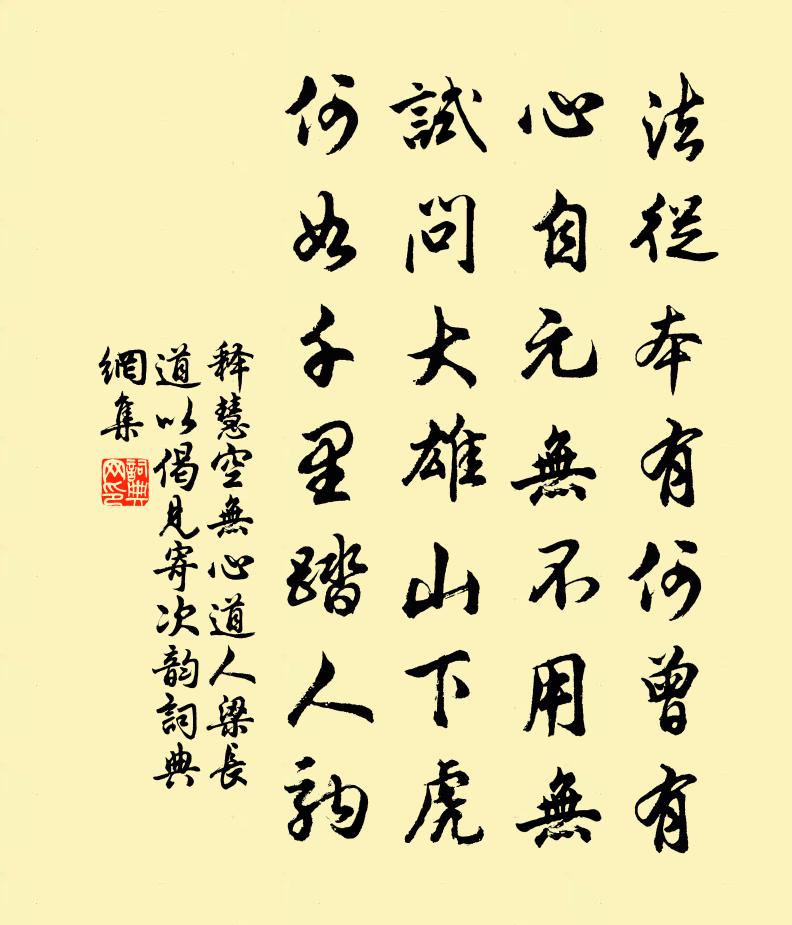 法從本有何曾有
心自元無不用無
試問大雄山下虎
何如千里踏人駒
释慧空無心道人梁長
道以偈見寄次韵詞典
網集
詞典網印